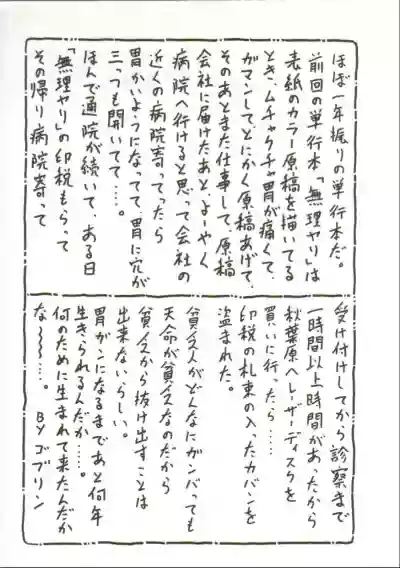 ほぼ一年振りの単行本だ。
前回の単行本「無理ヤリ」は
表紙のカラー原稿を描いてる
とき、ムチャクチャ胃が痛くて、
ガマンして、とにかく原稿あげて、
そのあとまた仕事して、原稿
会社に届けたあと、よーやく
病院へ行けると思って会社の
近くの病院寄ってったら
胃かいようになってて、胃に穴が
三つも開いてて‥‥。
ほんで通院が続いて、ある日
「無理ヤリ」の印税もらって
その帰り病院寄って
受け付けしてから診察まで
一時間以上時間があったから
秋葉原へレーザーディスクを
買いに行ったら‥‥
印税の札束の入ったカバンを
盗まれた。
貧乏人がどんなにガンバっても
天命が貧乏なのだから
貧乏から抜け出すことは
出来ないらしい。
胃がンになるまであと何年
生きられるんだか‥‥。
何のために生まれて来たんだか
な〜〜〜‥‥。 BYゴブリン